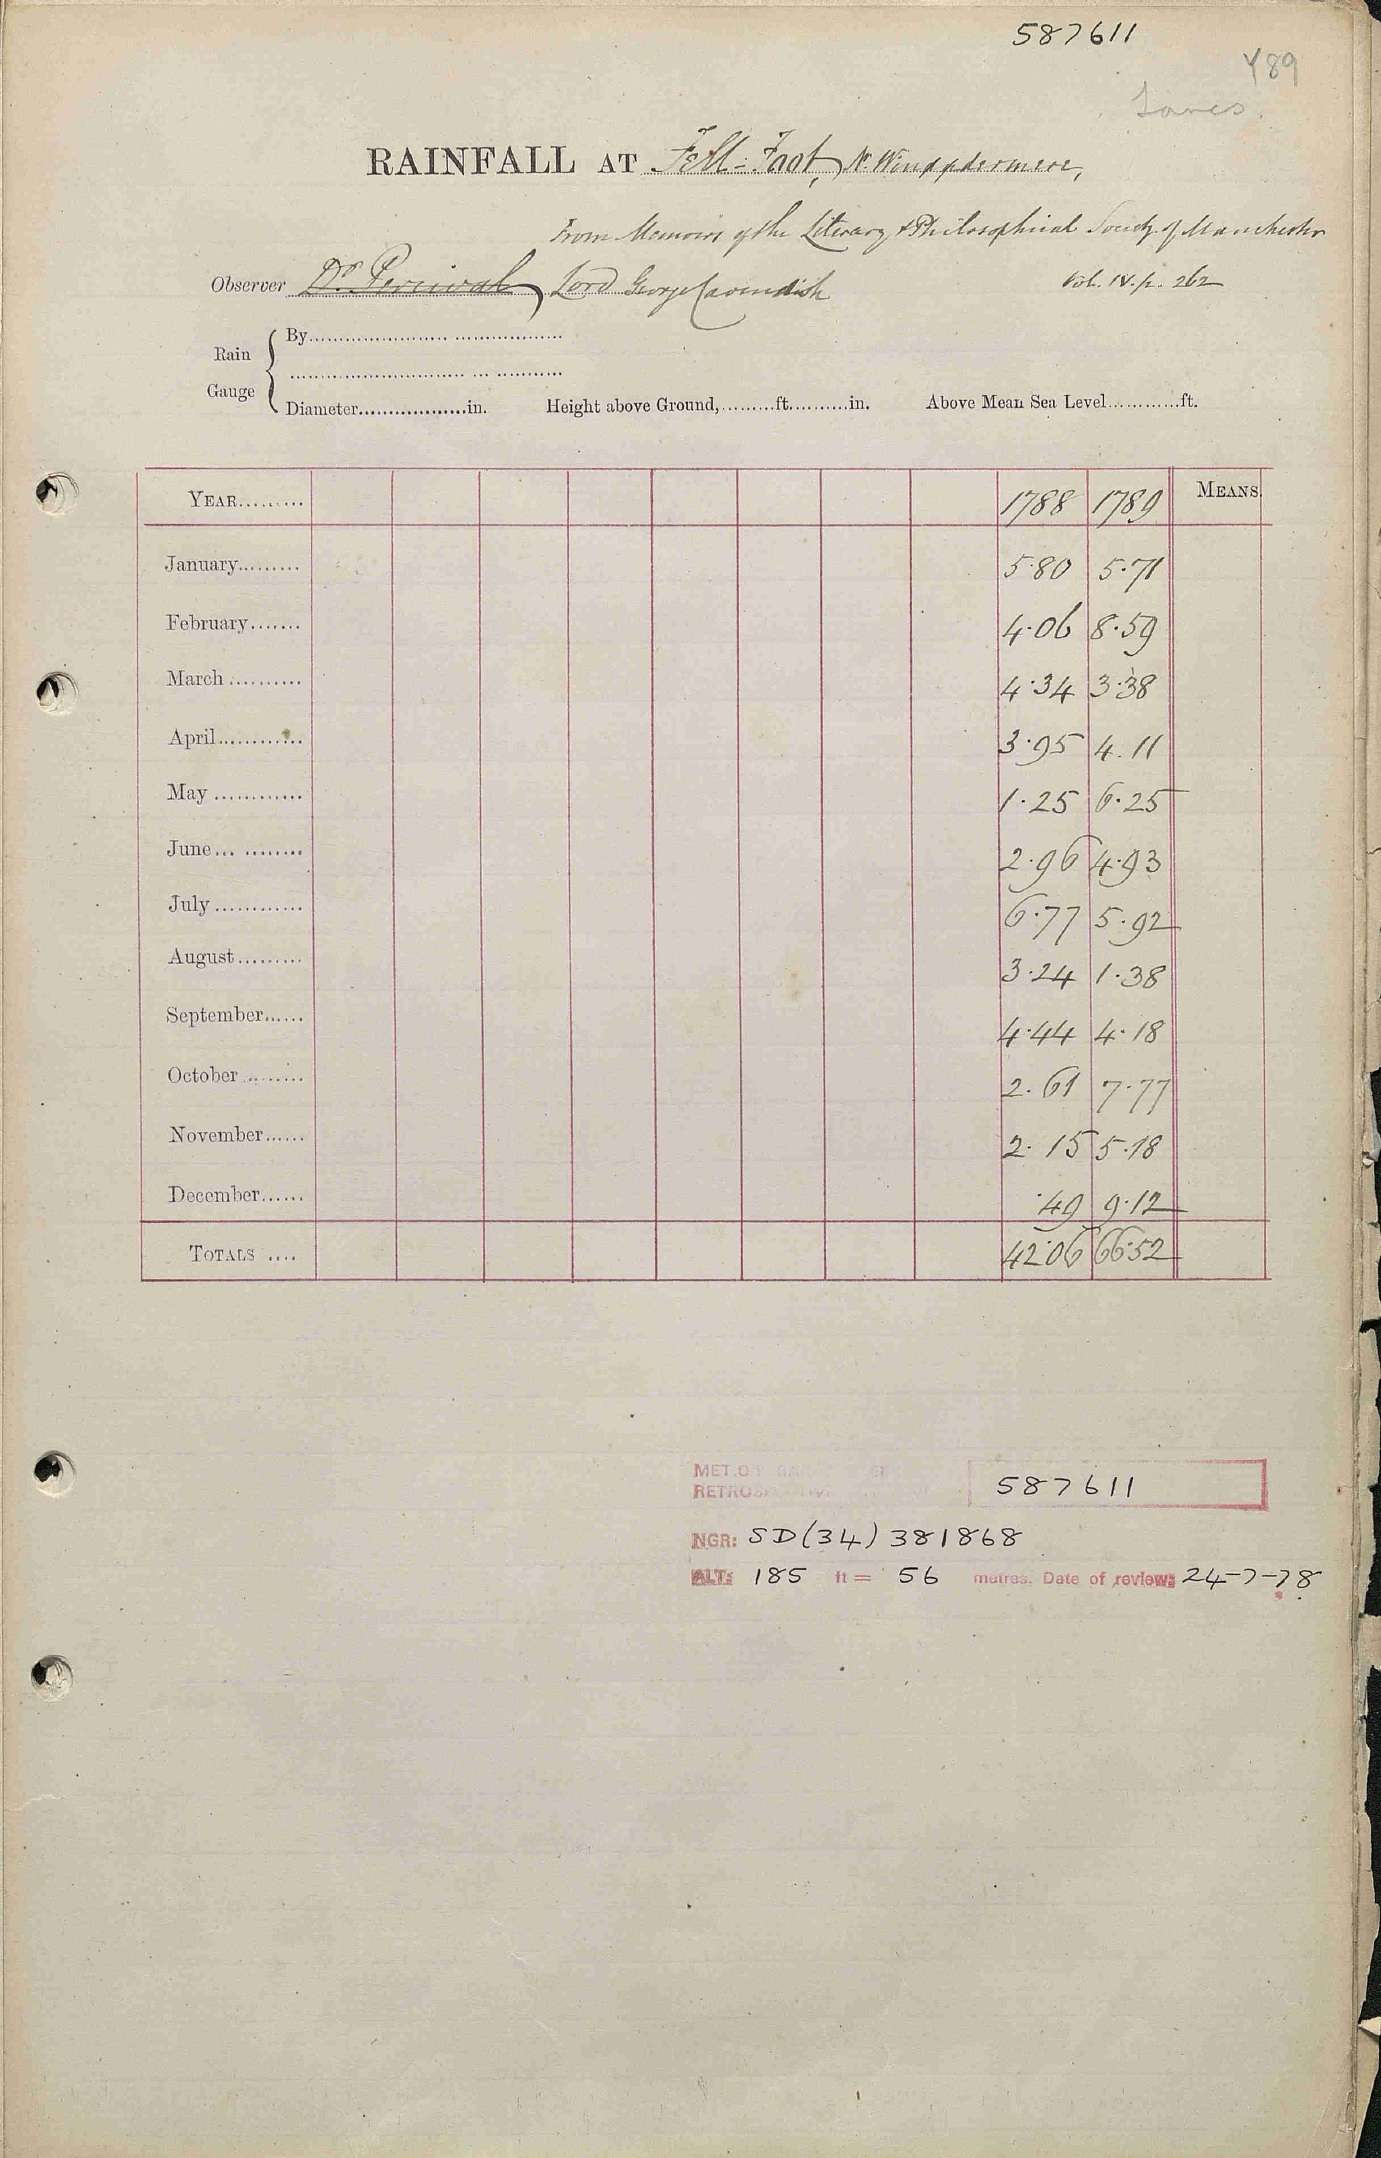 587611
Y89
Lancs.
RAINFALL AT Fell-Foot, Nr. Windermere,
From Memoirs of the Literary & Philosophical Society of Manchester
Observer Dr. Percival Lord George Cavendish Vol. IV. p. 262
Rain Gauge
By
Diameter in. Height above Ground, ft. in. Above Mean Sea Level ft.
YEAR 1788 1789 MEANS.
January 5.80 5.71
February 4.06 8.59
March 4.34 3.38
April 3.95 4.11
May 1.25 6.25
June 2.96 4.93
July 6.77 5.92
August 3.24 1.38
September 4.44 4.18
October 2.61 7.77
November 2.15 5.18
December .49 9.12
TOTALS 42.06 66.52
MET.O
587611
NGR: SD(34) 381868
ALT: 185 ft = 56 metres. Date of review: 24-7-78